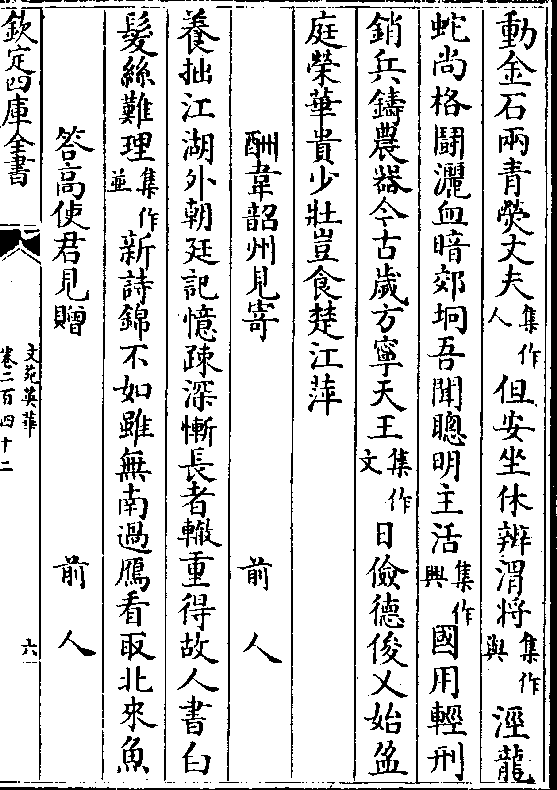 動金石兩青熒丈夫集作人但安坐休辨渭將集作與涇龍
蛇尚格鬭灑血暗郊坰吾聞聰明主活集作興國用輕刑
銷兵鑄農器今古歲方寧天王集作文日儉德俊乂始盈
庭榮華貴少壯豈食楚江萍
酬韋韶州見寄 前人
養拙江湖外朝廷記憶疎深慚長者轍重得故人書白
髮絲難理集作並新詩錦不如雖無南過鴈看取北來魚
答高使君見贈 前人
欽定四庫全書
文苑英華
卷二百四十二
六